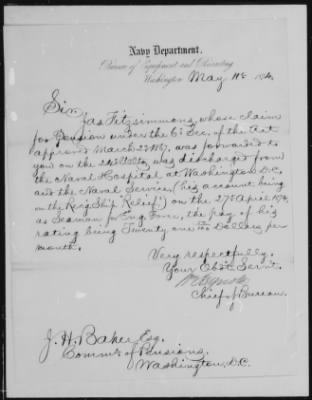 Navy Department.
Bureau of Equipment and Recruiting
Washington May 11th 1874.
Sir
Jas Fitzsimmons, whose claim
for Pension under the 6th Sec. of the Act
approved March 2d 1867, was forwarded to
you on the 24th Ulto, was discharged from
the Naval Hospital at Washington D.C.
and the Naval Service (his account being
on the Rec'g Ship Relief) on the 27th April 1874,
as Seaman for Eng. Force, the pay of his
rating being Twenty one Dollars per
month.
Very respectfully,
Your Obt Servt.
Chief of Bureau.
J. H. Baker Esq.
Commr of Pensions,
Washington, D.C.